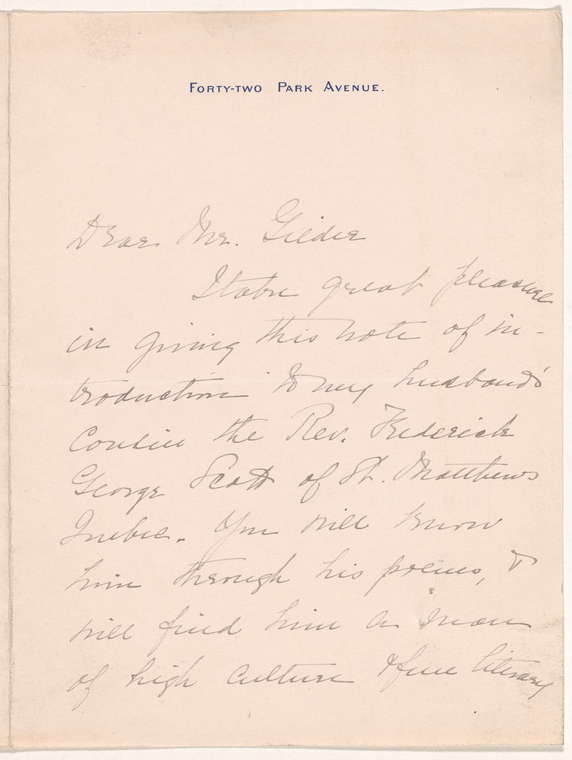 FORTY-TWO PARK AVENUE.
Dear Mr. Gilder
I take great pleasure
in giving this note of in-
troduction to my husband's
Cousin the Rev. Frederick
George Scott of St. Matthews
Quebec. You will know
him through his poems, &
will find him a man
of high culture & fine literary